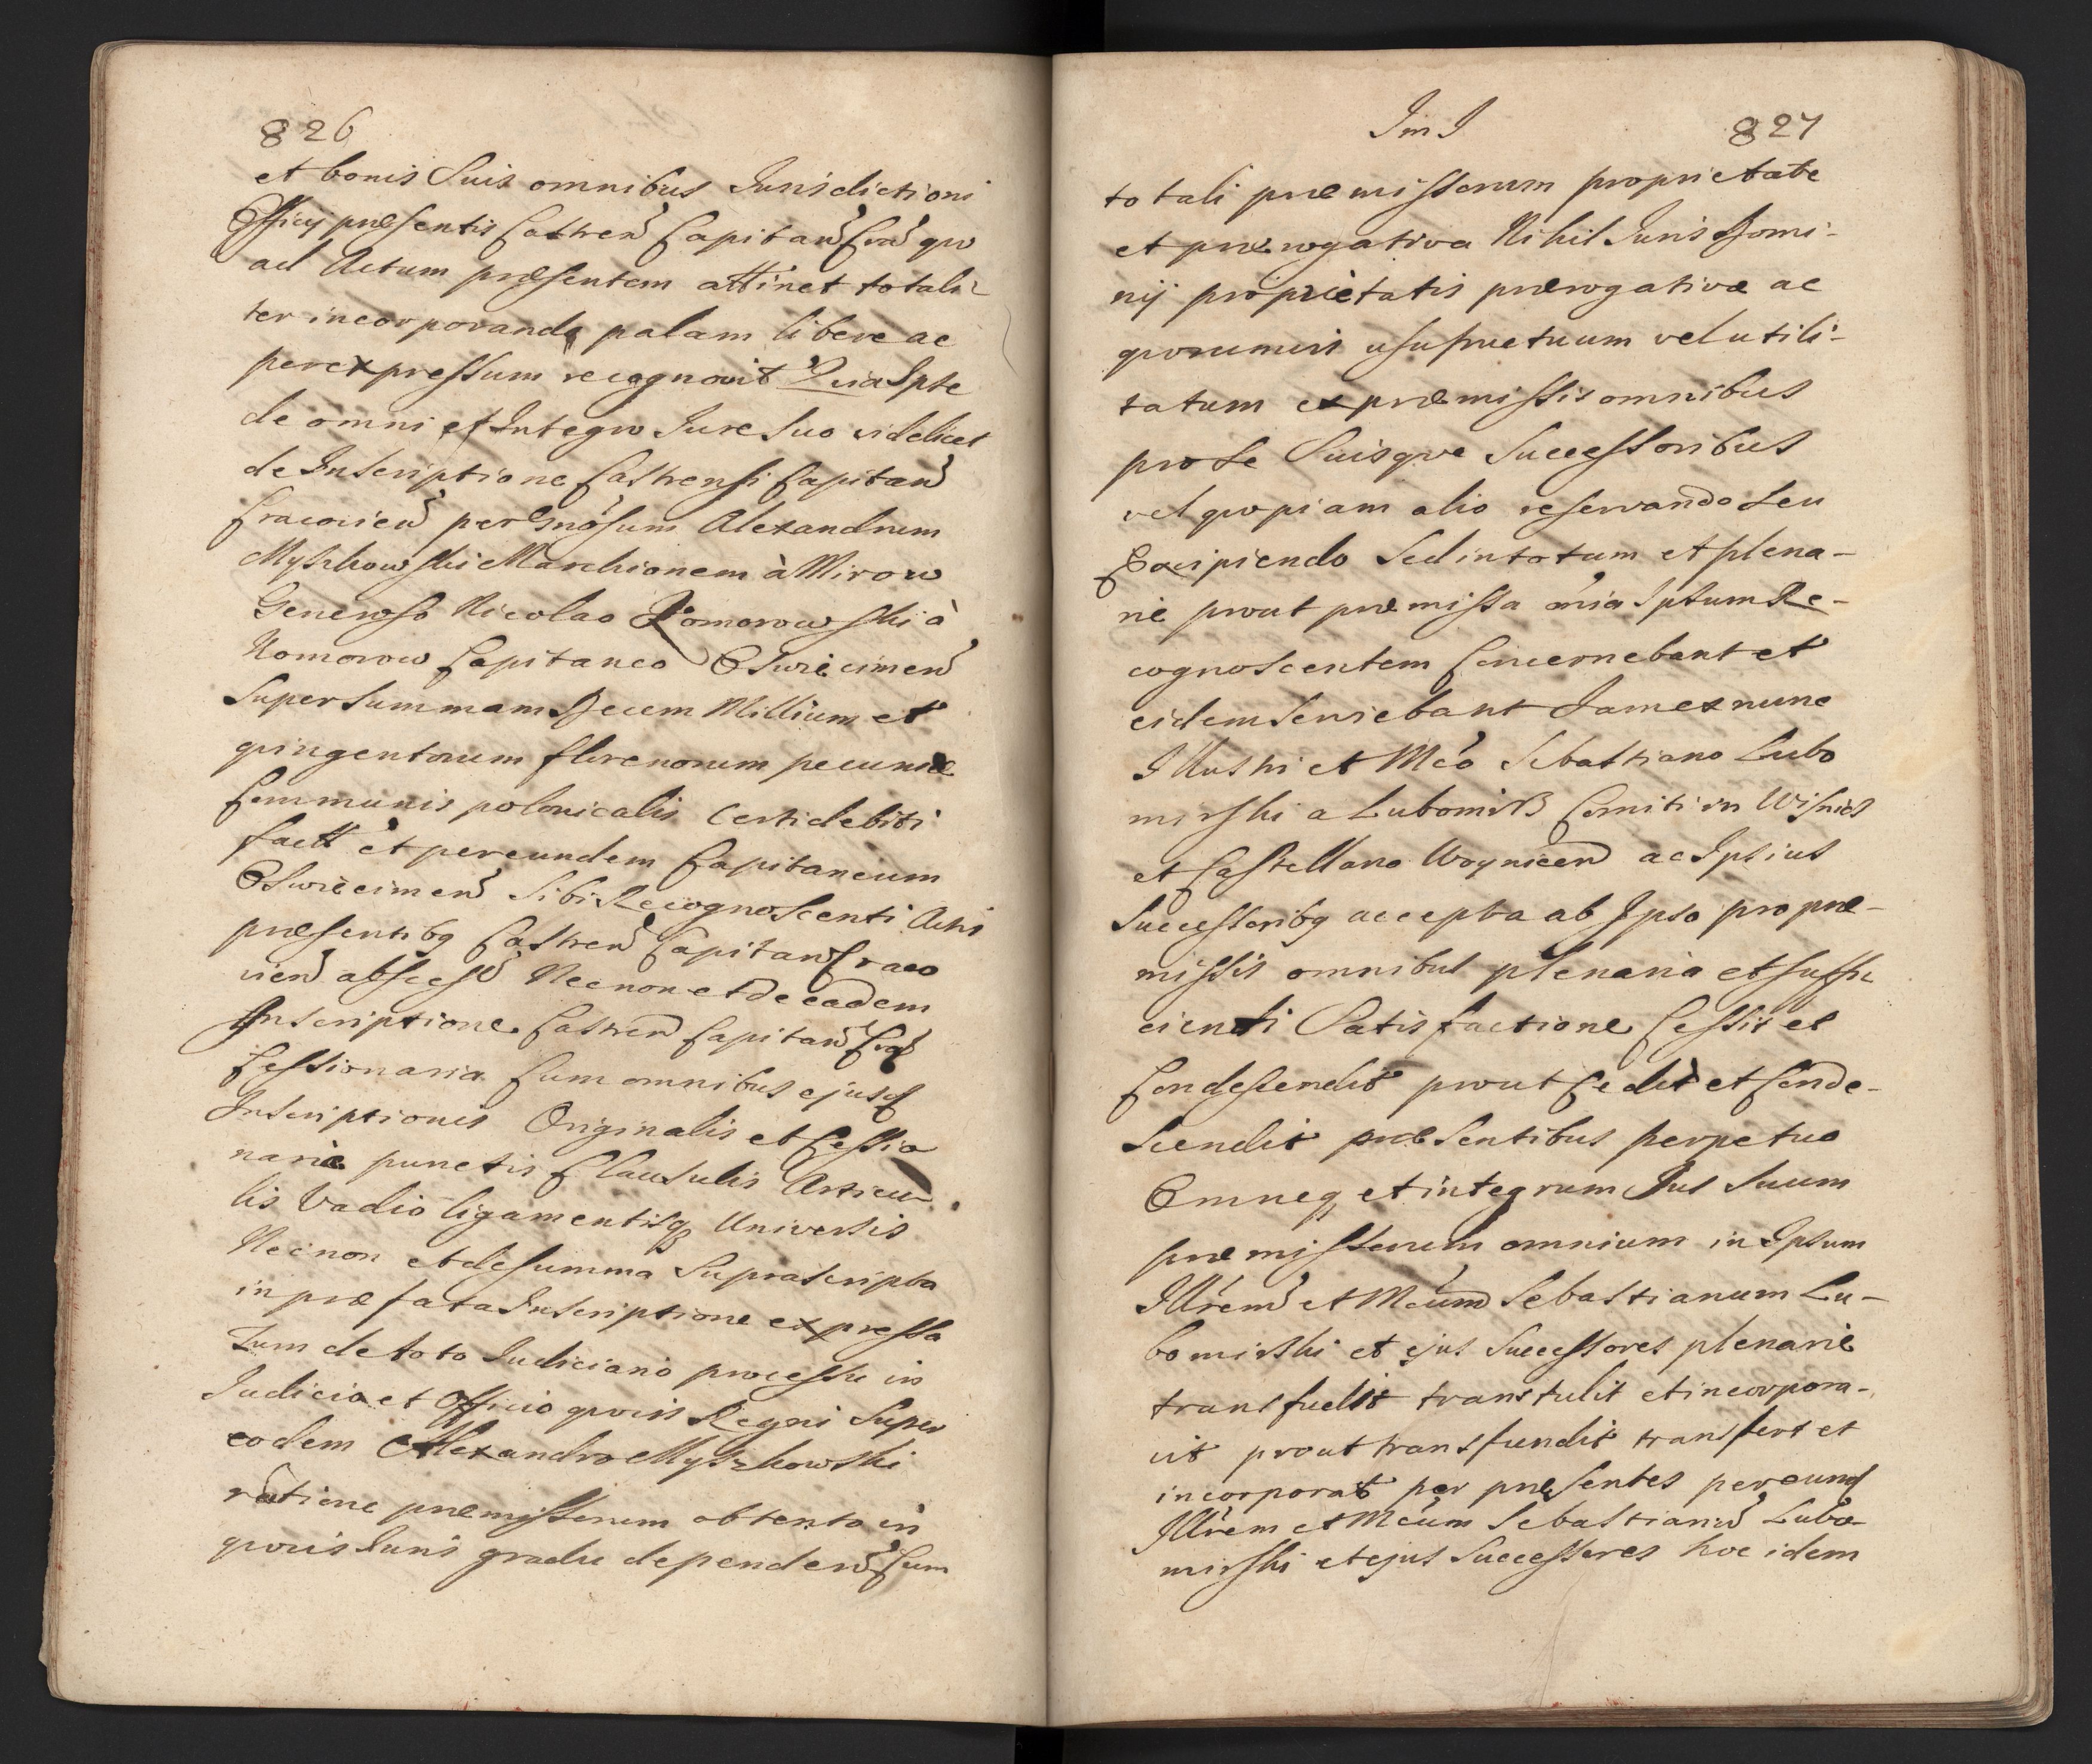 826
et bonis Suis omnibus Jurisdictioni
Officij præsentis Castren Capitan Crac quo
ad Actum præsentem attinet totali-
ter incorporando palam libere ac
per expressum recognovit Quia Ipse
de omni et Integro Jure Suo videlicet
de Inscriptione Castrensi Capitan
Cracovien per Gnosum Alexandrum
Myszkowski Marchionem à Mirow
Generoso Nicolao Komorowski à
Komorow Capitaneo Oswiecimen
Super Summam Decem Millium et
qvingentorum florenorum pecuniæ
Communis polonicalis Certi debiti
fact et per eundem Capitaneum
Oswiecimen Sibi Recognoscenti Actis
præsentibq Castren Capitan Craco
vien abscess Nec non et de eadem
Inscriptione Castren Capitan Crac
Cessionaria Cum omnibus ejusd
Inscriptionis Originalis et Cessio
nariæ punctis Clausulis Articu-
lis Vadio ligamentisq Universis
Nec non et de Summa Suprascripta
in præfata Inscriptione expressa
Tum de toto Judiciario processu in
Judicio et Officio qvovis Regni Super
eodem Alexandro Myszkowski
ratione præmissorum obtento in
qvovis Juris gradu dependen Cum
Im I 827
totali præmissorum proprietate
et prærogativa Nihil Juris Domi-
nij proprietatis prærogativæ ac
qvorumvis usufructuum vel utili-
tatum ex præmissis omnibus
pro Se Suisqve Successoribus
vel qvopiam alio reservando Seu
Excipiendo Sed in totum et plena-
rie prout præmissa omia Ipsum Re-
cognoscentem Concernebant et
eidem Serviebant Jam ex nunc
Illustri et Mco Sebastiano Lubo
mirski a Lubomirz Comiti in Wisnicz
et Castellano Woynicen ac Ipsius
Successoribq accepta ab Ipso pro præ-
missis omnibus plenaria et suffi
cienti Satisfactione Cessit et
Condescendit prout Cedit et Conde-
scendit præsentibus perpetuo
Omneq et integrum Jus Suum
præmissorum omnium in Ipsum
Illrem et Mcum Sebastianum Lu-
bomirski et ejus Successores plenarie
transfudit transtulit et incorpora-
vit prout transfundit transfert et
incorporat per præsentes per eund
Illrem et Mcum Sebastianum Lubo-
mirski et ejus Successores hoc idem